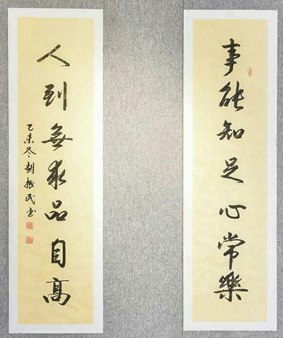 事能知足心常樂
人到無求品自高
乙未冬胡振民書